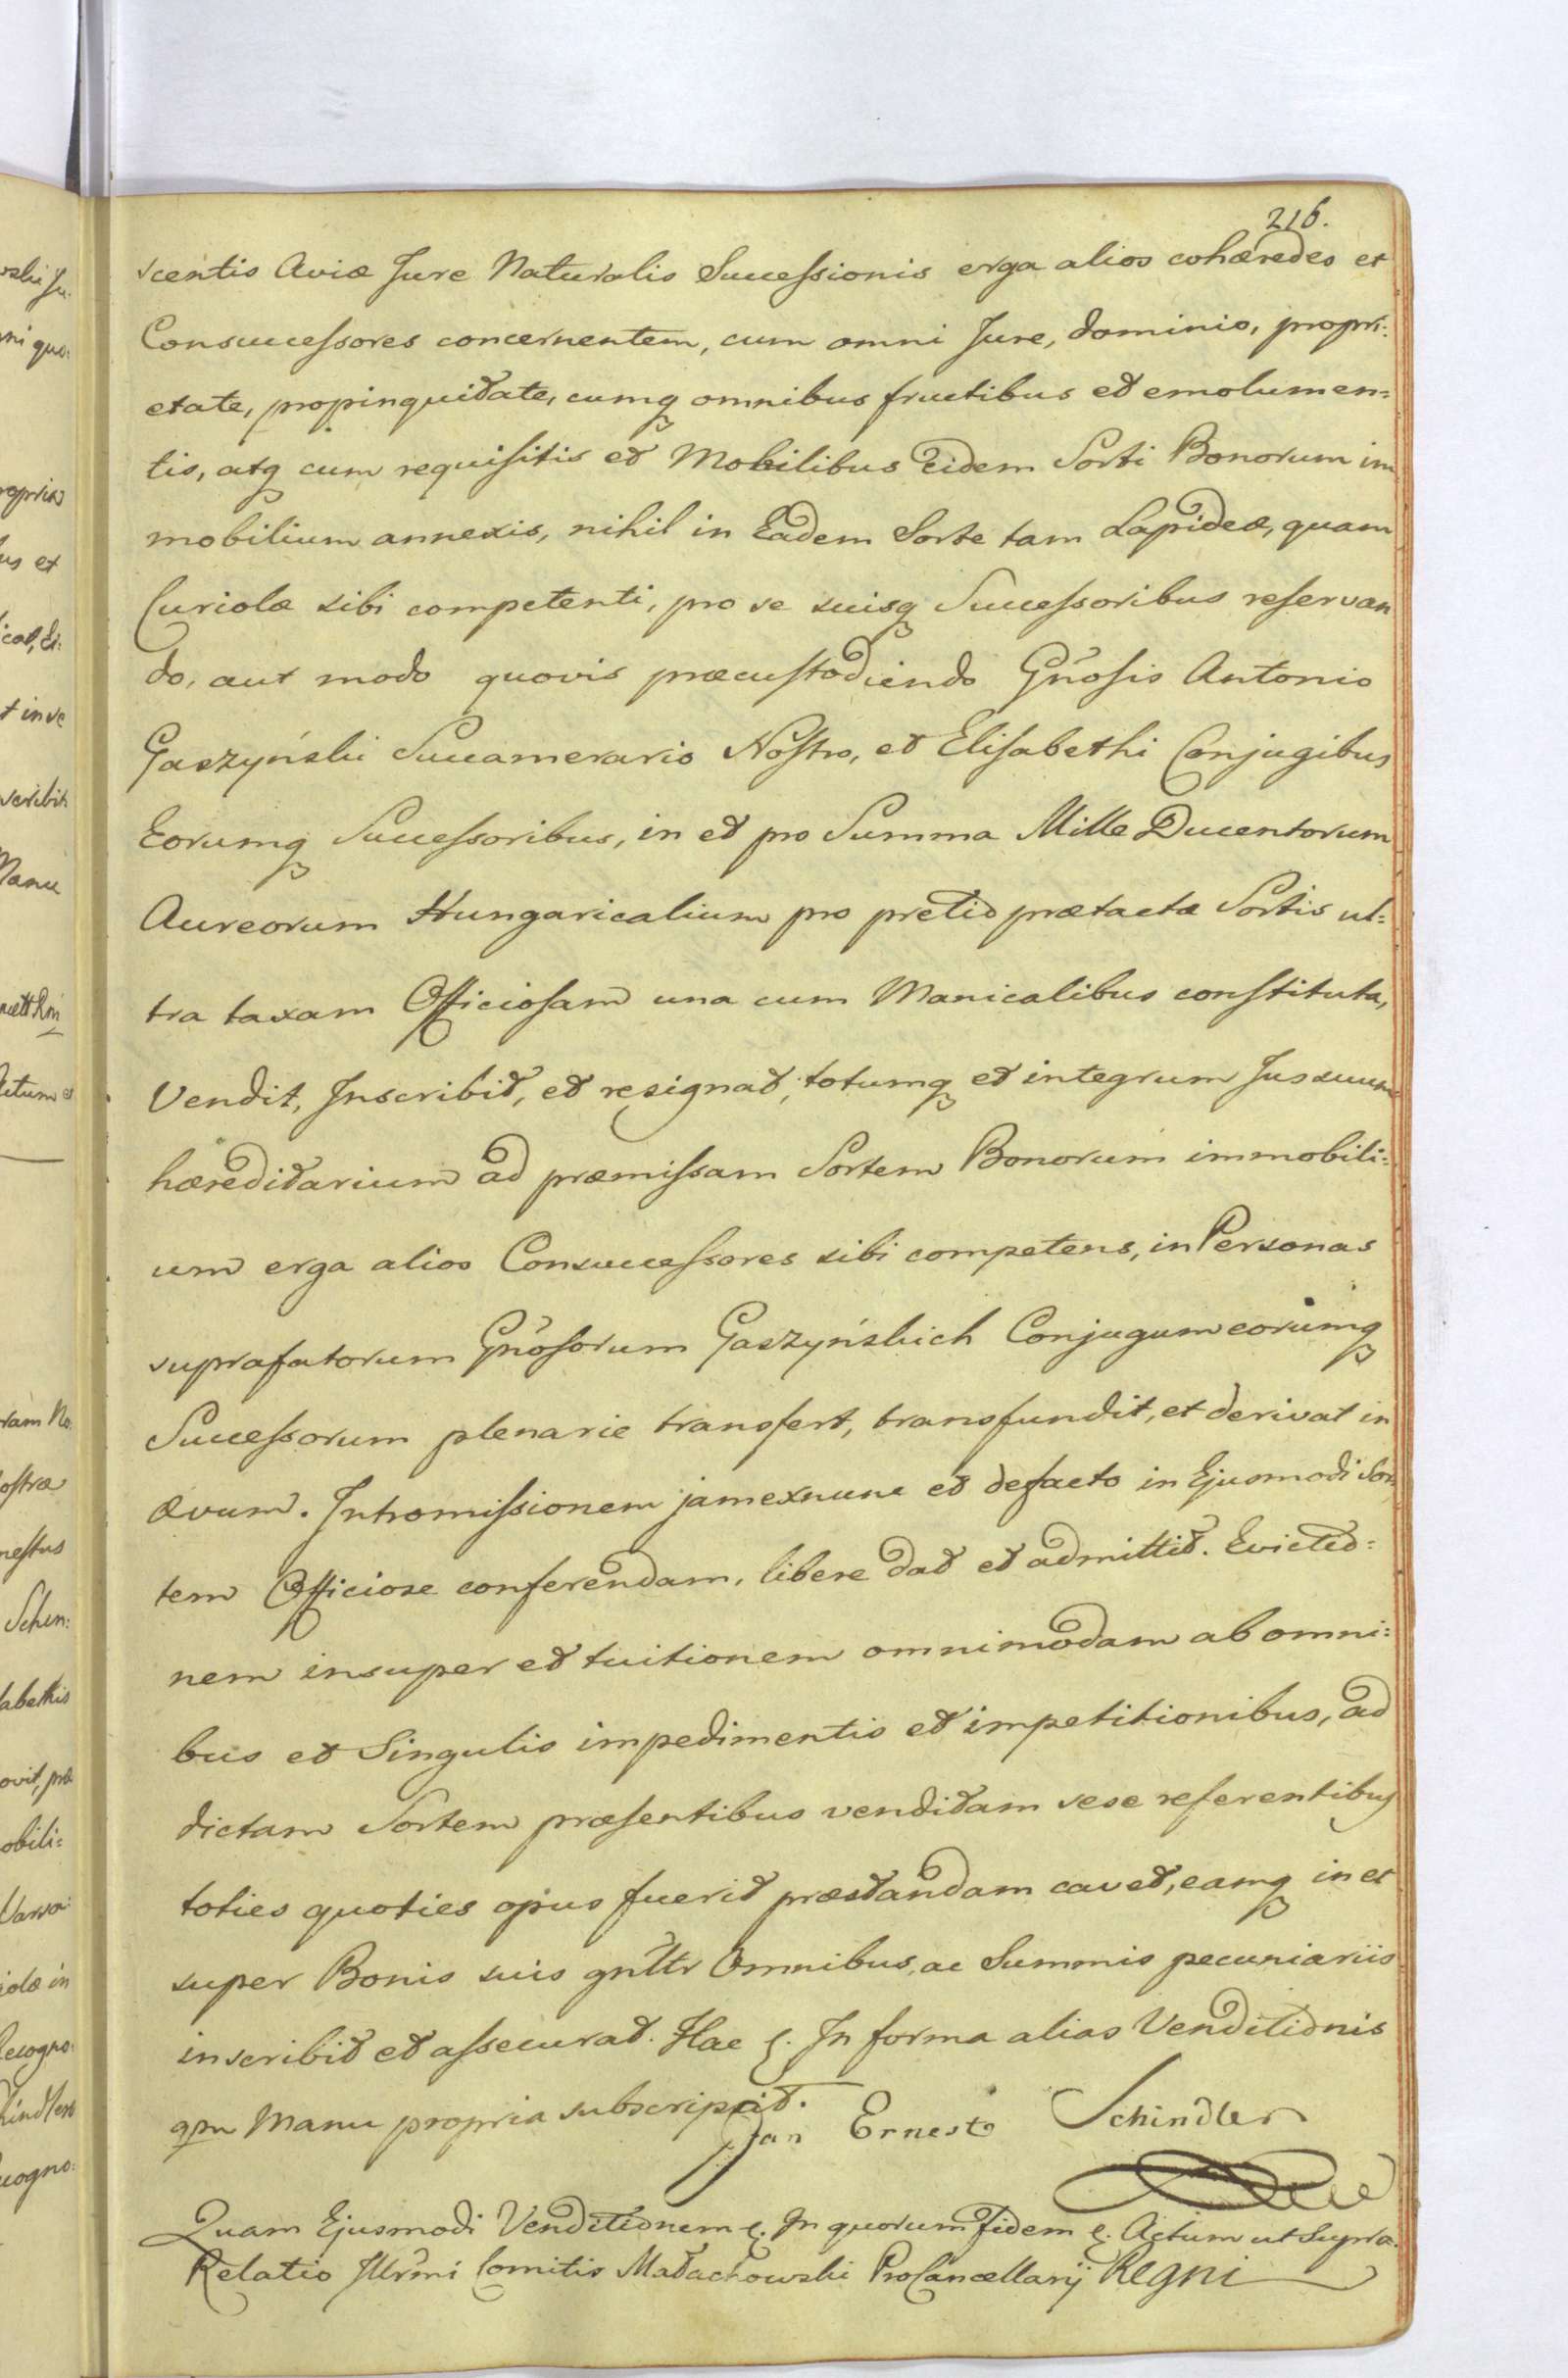 216.
scentis Aviæ Jure Naturalis Successionis erga alios cohæredes et
Consuccessores concernentem, cum omni Jure, dominio, propri:
etate, propinquitate, cumq omnibus fructibus et emolumen=
tis, atq cum requisitis et Mobilibus Eidem Sorti Bonorum im
mobilium annexis, nihil in Eadem Sorte tam Lapideæ, quam
Curiolæ sibi competenti, pro se suisq Successoribus reservan
do, aut modo quovis præcustodiendo Gnosis Antonio
Gaszyński Succamerario Nostro, et Elisabethi Conjugibus
Eorumq Successoribus, in et pro Summa Mille Ducentorum
Aureorum Hungaricalium pro pretio prætactæ Sortis ul=
tra taxam Officiosam una cum Manicalibus constituta,
Vendit, Inscribit, et resignat, totumq et integrum Jus suum
hæreditarium ad præmissam Sortem Bonorum immobili=
um erga alios Consuccessores sibi competens, in Personas
suprafatorum Gnosorum Gaszyńskich Conjugum eorumq
Successorum plenarie transfert, transfundit, et derivat in
ævum. Intromissionem jam exnunc et defacto in Ejusmodi Sor
tem Officiose conferendam, libere dat et admittit. Evictio=
nem insuper et tuitionem omnimodam ab omni=
bus et Singulis impedimentis et impetitionibus, ad
dictam Sortem præsentibus venditam sese referentibus
toties quoties opus fuerit præstandam cavet, eamq in et
super Bonis suis gnltr Omnibus, ac Summis pecuniariis
inscribit et assecurat. Hac &. In forma alias Venditionis
qm Manu propria subscripsit.
Jan Ernest Schindler
Quam Ejusmodi Venditionem &. In quorum fidem &. Actum ut Supra.
Relatio Illrmi Comitis Małachowski ProCancellarij Regni